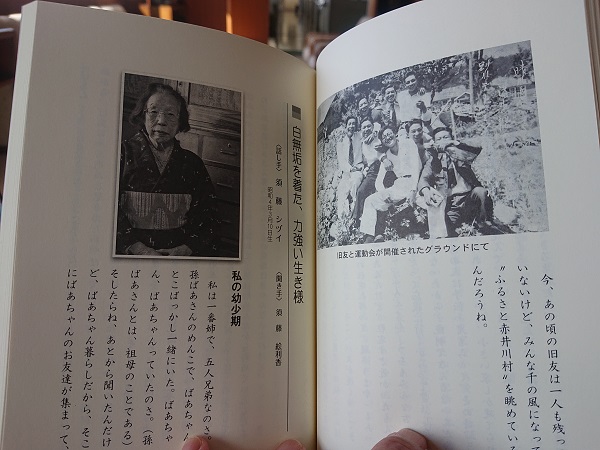 旧友と運動会が開催されたグラウンドにて
今、あの頃の旧友は一人も残っ
いないけど、みんな千の風になって
〝ふるさと赤井川村〟を眺めている
んだろうね。
白無垢を着た、力強い生き様
〈話し手〉 須藤 シヅイ
〈聞き手〉 須藤 絵利香
私の幼少期
私は一番姉で、五人兄弟なのさ。
孫ばあさんのめんこで、ばあちゃん
とこばっかし一緒にいた。ばあちゃ
ん、ばあちゃんっていたのさ。(孫
ばあさんとは、祖母のことである)
そしたらね、あとから聞いたんだけ
ど、ばあちゃん暮らしだから、そこ
にばあちゃんのお友達が集まって、